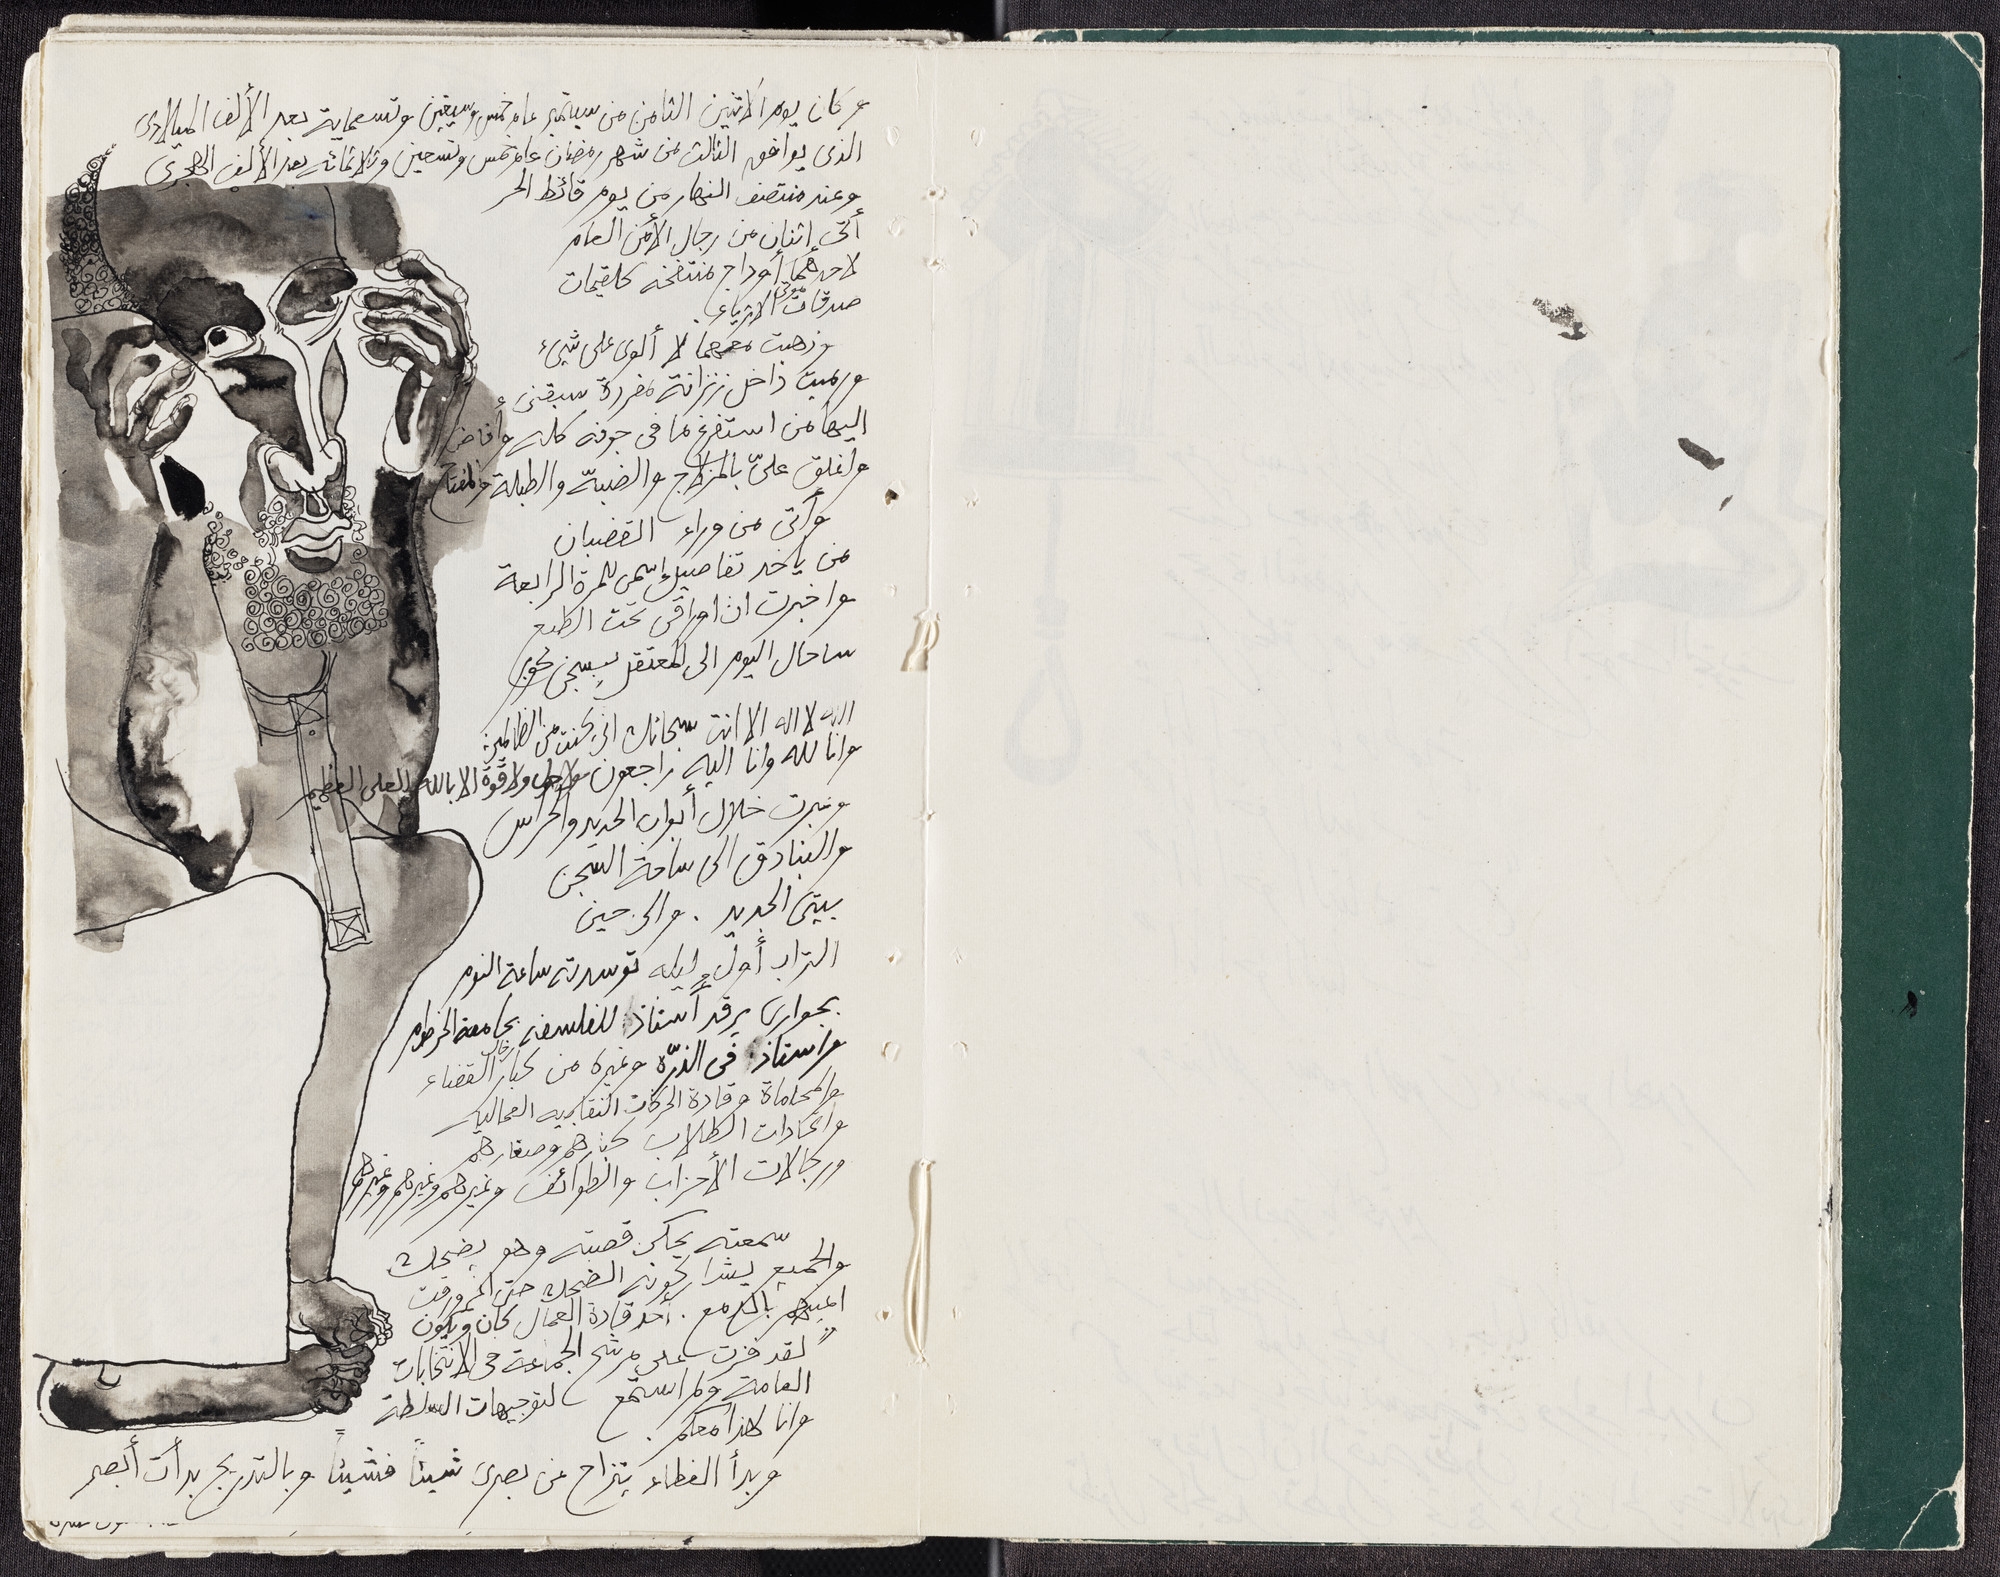 وكان يوم الاثنين الثامن من سبتمبر عام خمس وسبعين وتسعماية بعد الألف الميلادى
الذى يوافق الثالث من شهر رمضان عام خمس وتسعين وثلاثمائه بعد الألف الهجرى
وعند منتصف النهار من يوم قائظ الحر
أتى إثنان من رجال الأمن العام
لاحدهما أوداج منتفخه كلقيمات
صدقات موتى الاثرياء .
وذهبت معهما لا ألوى على شىء
ورميت داخل زنزانة مفردة سبقنى
اليها من استفرغ ما فى جوفه كله وأفاض
واغلق علىّ بالمزلاج والضبّة والطبلة والمفتاح
وأتى من وراء القضبان
من يأخذ تفاصيل إسمى للمرة الرابعة
واخبرت ان اوراقى تحت الطبع
ساحال اليوم الى المعتقل بسجن كوبر
الله لا اله الا انت سبحانك انى كنت من الظالمين
وانا لله وانا اليه راجعون ولاحول ولا قوة الا بالله العلى العظيم
وعبرت خلال أبواب الحديد والحراس
والبنادق الى ساحة السجن
بيتى الجديد . والى حين
التراب أول ليله توسدته ساعة النوم
بجوارى يرقد أستاذ للفلسفه بجامعة الخرطوم
واستاذ فى الذرّه وغيره من كبار رجال القضاء
والمحاماة وقادة الحركات النقابيه العماليه
واتحادات الطلاب كبيرهم وصغيرهم
ورجالات الأحزاب والطوائف وغيرهم وغيرهم وغيرهم
سمعته يحكى قصته وهو يضحك
والجميع يشاركونه الضحك حتى اغرورقت
اعينهم بالدمع . أحد قادة العمال كان ويكون
" لقد فزت على مرشح الجماعة فى الانتخابات
العامة ولم استمع لتوجيهات السلطة
وانا لهذا معكم .
وبدأ الغطاء ينزاح عن بصرى شيئاً فشيئاً وبالتدريج بدأت أبصر